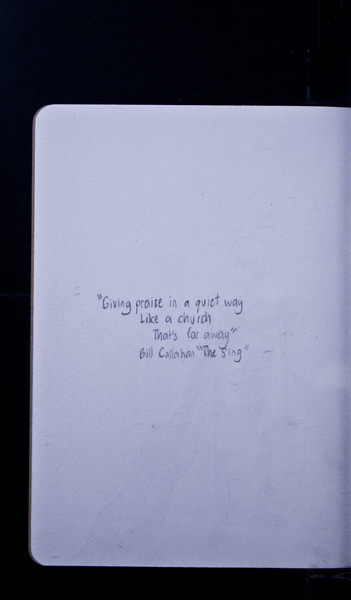 "Giving praise in a quiet way
Like a church
That's far away"
Bill Callahan "The Sing"